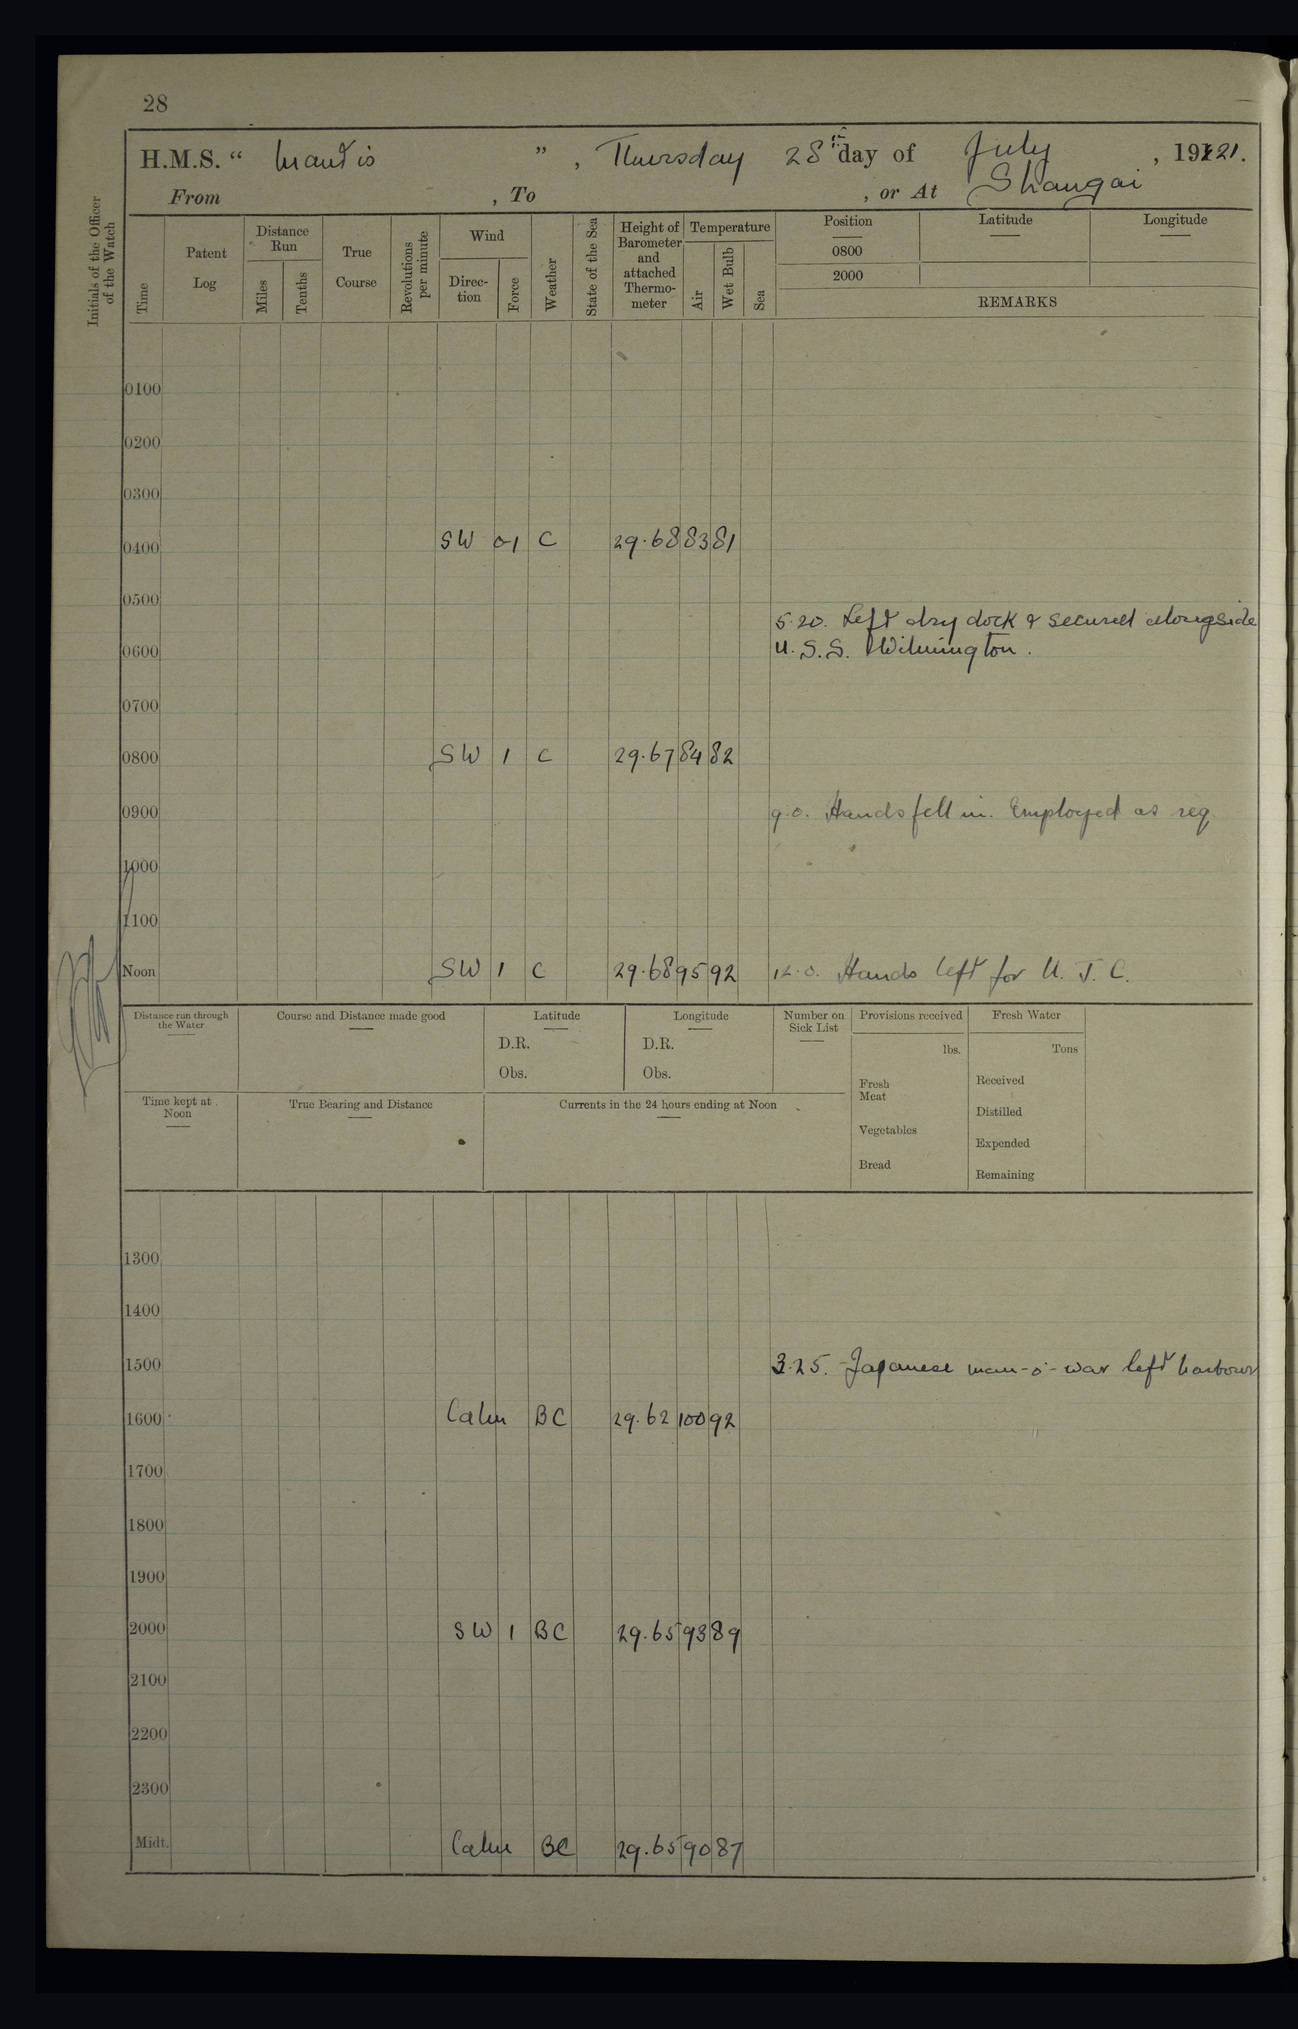 28
H.M.S. “ Mantis ” , Thursday 28th day of July , 1921.
From , To , or At Shangai
Initials of the Officer of the Watch
Time
Patent Log
Distance Run
Miles
Tenths
True Course
Revolutions per minute
Wind
Direc-tion
Force
Weather
State of the Sea
Height of Barometer and attached Thermo-meter
Temperature
Air
Wet Bulb
Sea
Position Latitude Longitude
0800
2000
REMARKS
0100
0200
0300
0400 SW 0-1 C 29.68 83 81
0500
5.20. Left dry dock & secured alongside
0600 U.S.S. Wilmington.
0700
0800 SW 1 C 29.67 84 82
0900 9.0. Hands fell in. Employed as req
1000
1100
Noon SW 1 C 29.68 95 92 12.0. Hands left for U. J. C.
Distance run through the Water
Course and Distance made good
Latitude
D.R.
Obs.
Longitude
D.R.
Obs.
Number on Sick List
Provisions received
lbs.
Fresh Meat
Vegetables
Bread
Fresh Water
Tons
Received
Distilled
Expended
Remaining
Time kept at Noon
True Bearing and Distance
Currents in the 24 hours ending at Noon
1300
1400
1500 3.25. Japanese man-o'-war left harbour
1600 Calm BC 29.62 100 92
1700
1800
1900
2000 SW 1 BC 29.65 93 89
2100
2200
2300
Midt. Calm BC 29.65 90 87